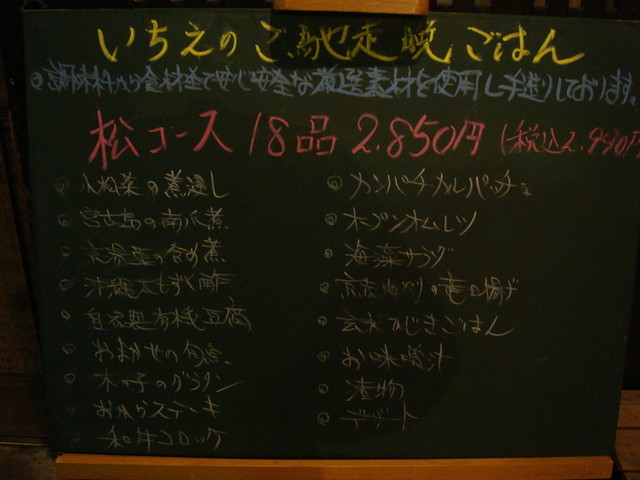 いちえのご馳走晩ごはん
調味料から食材まで安心安全な厳選素材を使用し手造りしております。
松コース 18品 2,850円 (税込2,990円
小松菜の煮浸し
宮古島の南瓜煮
京湯葉の含め煮
沖縄太もずく酢
自家製有機豆腐
おまかせの旬魚
木の子のグラタン
おからステーキ
和牛コロッケ
カンパチカルパッチョ
オープンオムレツ
海藻サラダ
の竜田揚げ
玄米ひじきごはん
お味噌汁
漬物
デザート